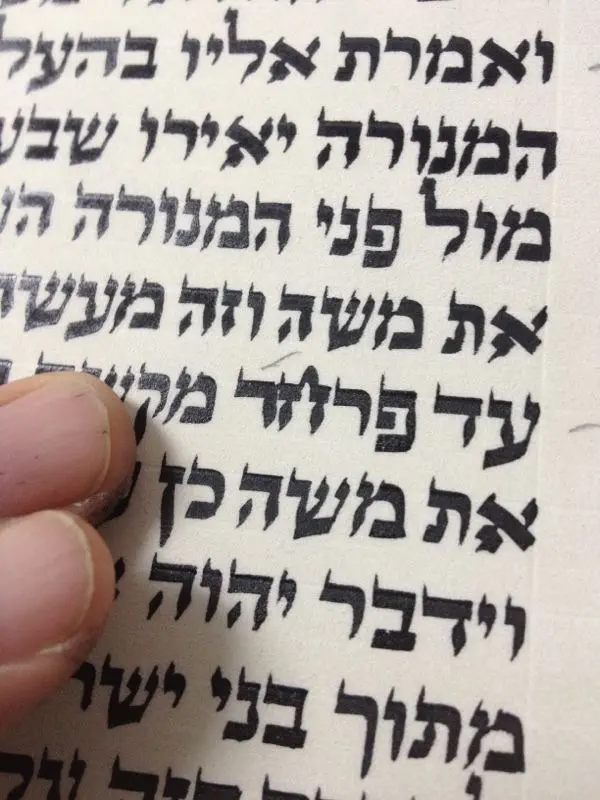 ואמרת אליו בהעל
המנורה יאירו שבע
מול פני המנורה הע
את משה וזה מעשה
עד פרחד מקשה
את משה כן
וידבר יהוה
מתוך בני ישר